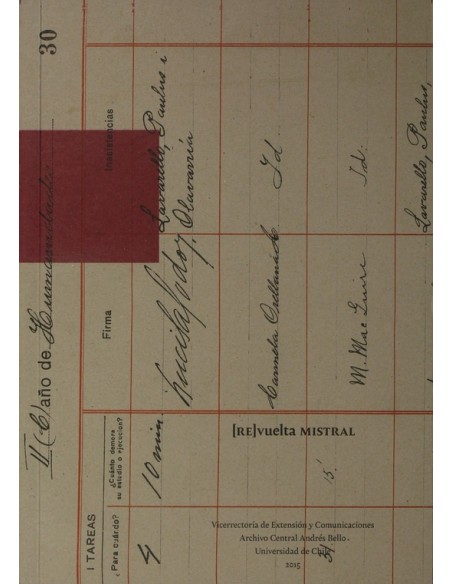 30
II (C) año de Humanidades
I TAREAS
¿Para cuándo?
¿Cuánto demora
su estudio o ejecución?
Firma
Inasistencias
4
10 min
Lucila Godoy
Lavarello, Paulus i
Olavarría
Carmela Orellana
Id
15'
M. Mac Guire
Id.
Lavarello, Paulus,
[RE]vuelta MISTRAL
Vicerrectoría de Extensión y Comunicaciones
Archivo Central Andrés Bello
Universidad de Chile
2015